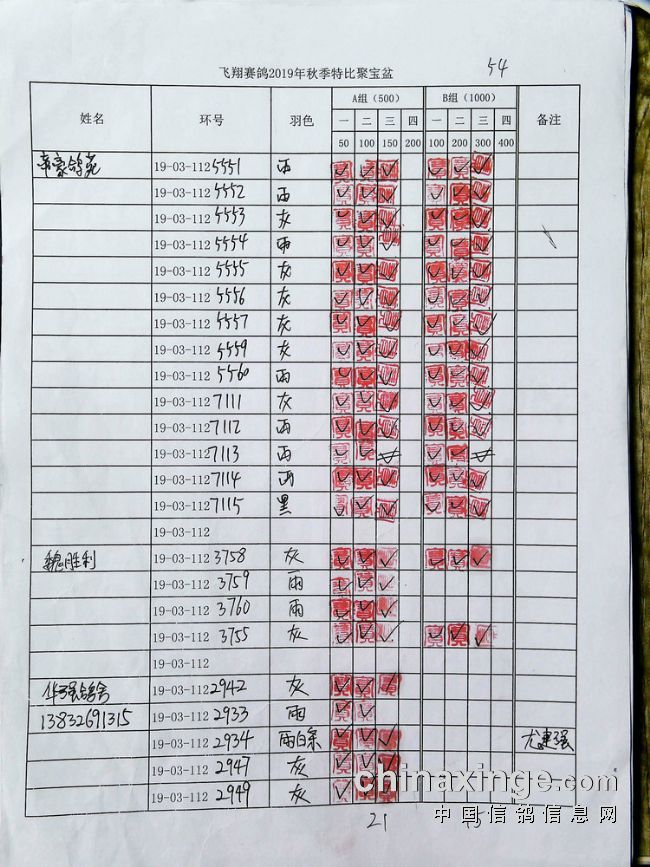 飞翔赛鸽2019年秋季特比聚宝盆 54
姓名 环号 羽色 A组（500） B组（1000） 备注
一 二 三 四 一 二 三 四
50 100 150 200 100 200 300 400
帝豪鸽苑 19-03-112 5551 雨
19-03-112 5552 雨
19-03-112 5553 灰
19-03-112 5554 雨
19-03-112 5555 灰
19-03-112 5556 灰
19-03-112 5557 灰
19-03-112 5559 灰
19-03-112 5560 雨
19-03-112 7111 灰
19-03-112 7112 雨
19-03-112 7113 雨
19-03-112 7114 雨
19-03-112 7115 黑
19-03-112
魏胜利 19-03-112 3758 灰
19-03-112 3759 雨
19-03-112 3760 雨
19-03-112 3755 灰
19-03-112
华强鸽舍 19-03-112 2942 灰
13832691315 19-03-112 2933 雨
19-03-112 2934 雨白条 尤建强
19-03-112 2947 灰
19-03-112 2949 灰
chinaxinge.com
中国信鸽信息网
21